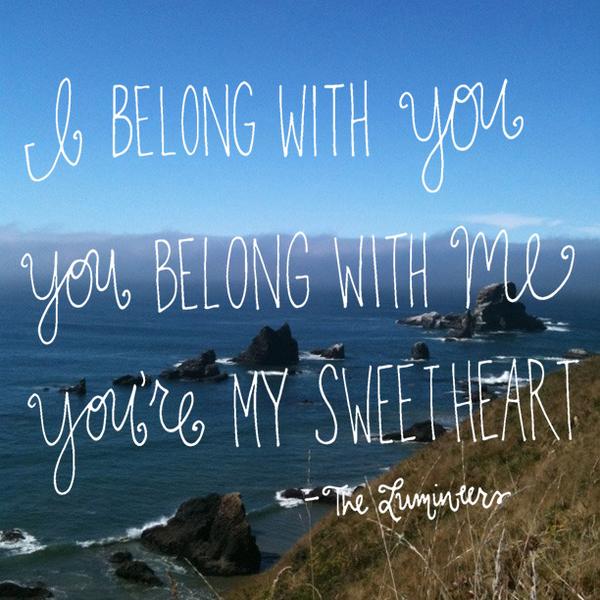 I BELONG WITH you
you BELONG WITH me
you're MY SWEETHEART
- The Lumineers